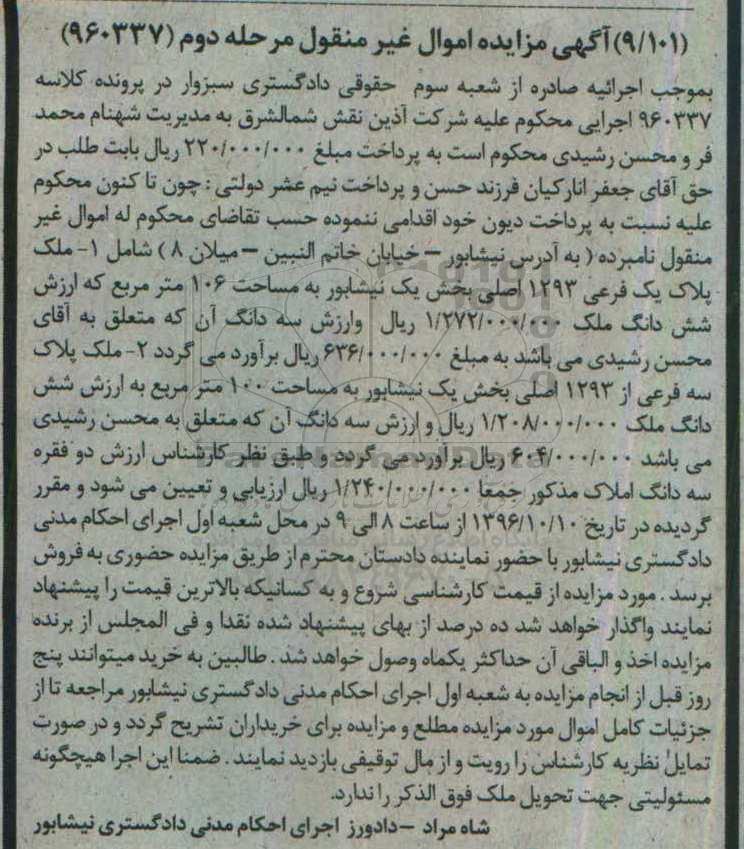 (۹/۱۰۱) آگهی مزایده اموال غیر منقول مرحله دوم (۹۶۰۳۳۷)
بموجب اجرائیه صادره از شعبه سوم حقوقی دادگستری سبزوار در پرونده کلاسه
۹۶۰۳۳۷ اجرایی محکوم علیه شرکت آذین نقش شمالشرق به مدیریت شهنام محمد
فر و محسن رشیدی محکوم است به پرداخت مبلغ ۲۲۰/۰۰۰/۰۰۰ ریال بابت طلب در
حق آقای جعفر انارکیان فرزند حسن و پرداخت نیم عشر دولتی : چون تا کنون محکوم
علیه نسبت به پرداخت دیون خود اقدامی ننموده حسب تقاضای محکوم له اموال غیر
منقول نامبرده ( به آدرس نیشابور – خیابان خاتم النبین – میلان ۸ ) شامل ۱- ملک
پلاک یک فرعی ۱۲۹۳ اصلی بخش یک نیشابور به مساحت ۱۰۶ متر مربع که ارزش
شش دانگ ملک ۱/۲۷۲/۰۰۰/۰۰۰ ریال وارزش سه دانگ آن که متعلق به آقای
محسن رشیدی می باشد به مبلغ ۶۳۶/۰۰۰/۰۰۰ ریال برآورد می گردد ۲- ملک پلاک
سه فرعی از ۱۲۹۳ اصلی بخش یک نیشابور به مساحت ۱۰۰ متر مربع به ارزش شش
دانگ ملک ۱/۲۰۸/۰۰۰/۰۰۰ ریال و ارزش سه دانگ آن که متعلق به محسن رشیدی
می باشد ۶۰۴/۰۰۰/۰۰۰ ریال برآورد می گردد و طبق نظر کارشناس ارزش دو فقره
سه دانگ املاک مذکور جمعا ۱/۲۴۰/۰۰۰/۰۰۰ ریال ارزیابی و تعیین می شود و مقرر
گردیده در تاریخ ۱۳۹۶/۱۰/۱۰ از ساعت ۸ الی ۹ در محل شعبه اول اجرای احکام مدنی
دادگستری نیشابور با حضور نماینده دادستان محترم از طریق مزایده حضوری به فروش
برسد . مورد مزایده از قیمت کارشناسی شروع و به کسانیکه بالاترین قیمت را پیشنهاد
نمایند واگذار خواهد شد ده درصد از بهای پیشنهاد شده نقدا و فی المجلس از برنده
مزایده اخذ و الباقی آن حداکثر یکماه وصول خواهد شد . طالبین به خرید میتوانند پنج
روز قبل از انجام مزایده به شعبه اول اجرای احکام مدنی دادگستری نیشابور مراجعه تا از
جزئیات کامل اموال مورد مزایده مطلع و مزایده برای خریداران تشریح گردد و در صورت
تمایل نظریه کارشناس را رویت و از مال توقیفی بازدید نمایند . ضمنا این اجرا هیچگونه
مسئولیتی جهت تحویل ملک فوق الذکر را ندارد.
شاه مراد – دادورز اجرای احکام مدنی دادگستری نیشابور